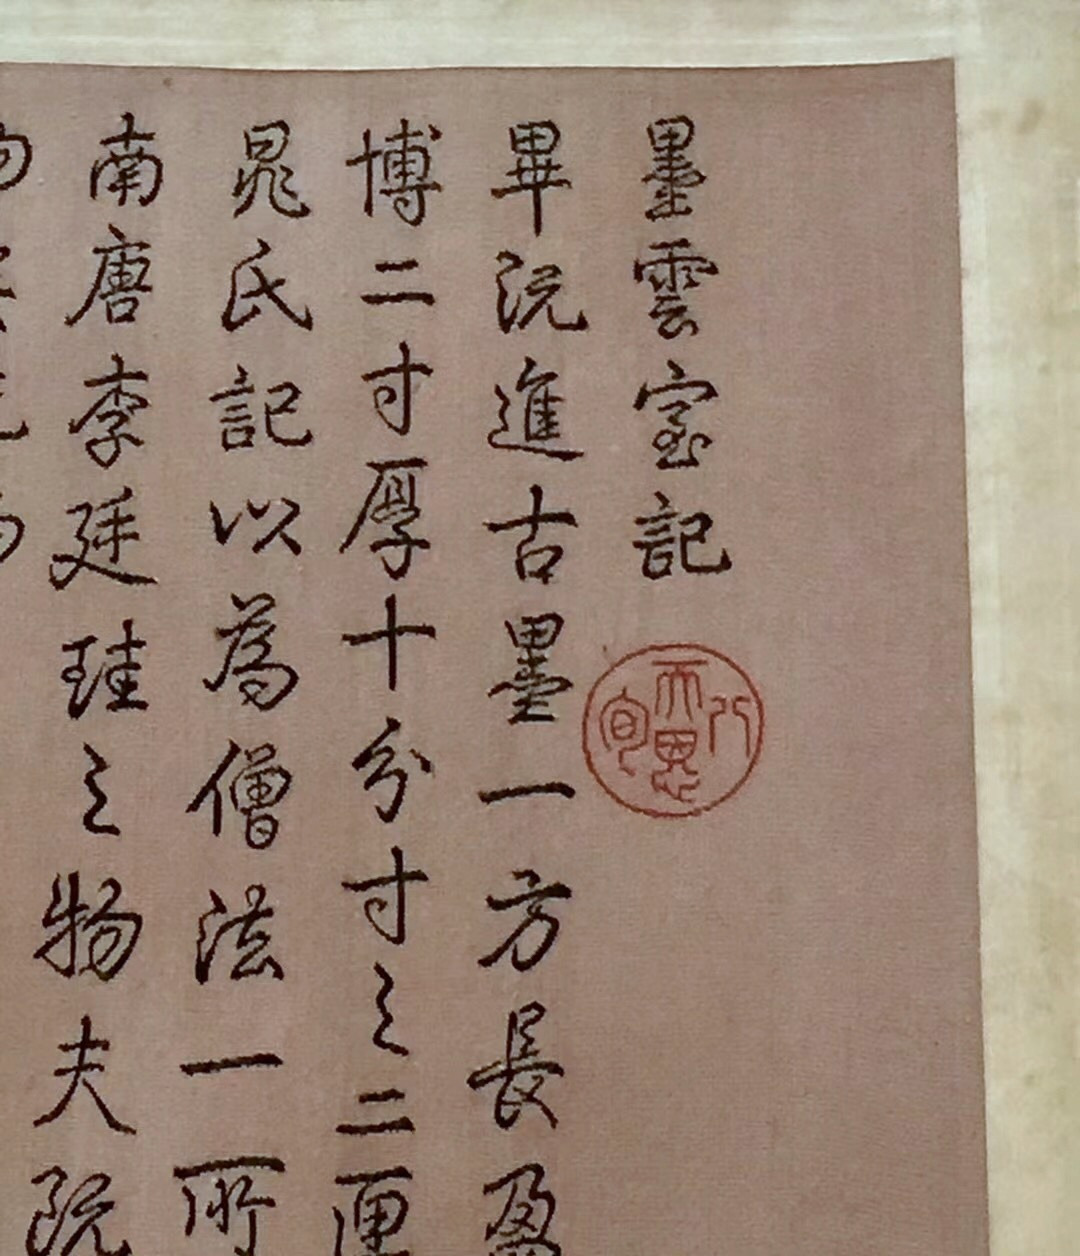 墨雲室記
畢沅進古墨一方長盈
博二寸厚十分寸之二厘
晁氏記以為僧法一所
南唐李廷珪之物夫阮